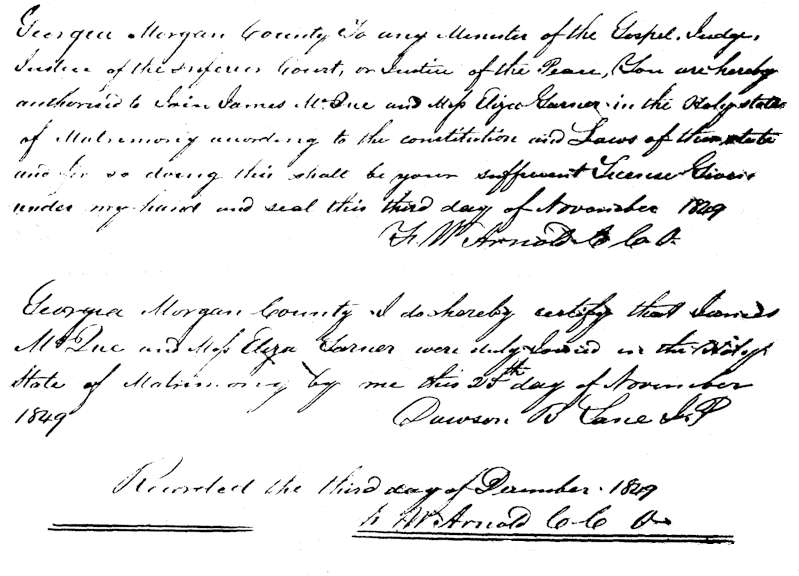 Georgia Morgan County To any Minister of the Gospel, Judge,
Justice of the Inferior Court, or Justice of the Peace, You are hereby
authorised to Join James McDuc and Miss Eliza Garner in the Holy state
of Matrimony according to the constitution and Laws of this state
and for so doing this shall be your sufficient License Given
under my hand and seal this third day of November 1849
F. W. Arnold C C O.
Georgia Morgan County I do hereby certify that James
McDuc and Miss Eliza Garner were duly Joined in the Holy
State of Matrimony by me this 25th day of November
1849 Dawson B Lane J. P
Recorded the third day of December 1849
F. W. Arnold C C O.